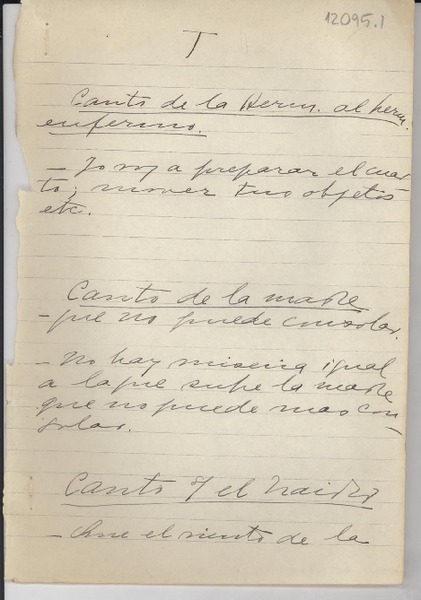 12095.1
T
Canto de la Herm. al herm.
enfermo.
— Yo voy a preparar el cuar-
to, mover tus objetos
etc.
Canto de la madre
– que no puede consolar.
– No hay miseria igual
a la que sufre la madre
que no puede mas con-
solar.
Canto el
– el viento de la